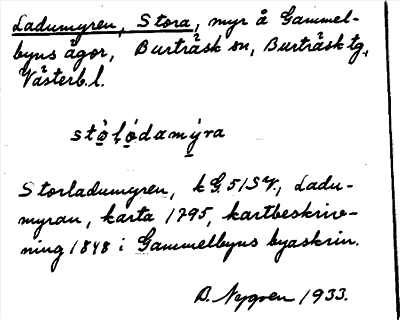 Ladumyren, Stora, myr å Gammel-
byns ägor, Burträsk sn, Burträsk tg,
Västerb. l.
stò̤ḷó̤damy̤ra
Storladumyren, k G. 51 SV., Ladu-
myran, karta 1795, kartbeskriv-
ning 1848 i Gammelbyns byaskrin.
B. Nygren 1933.